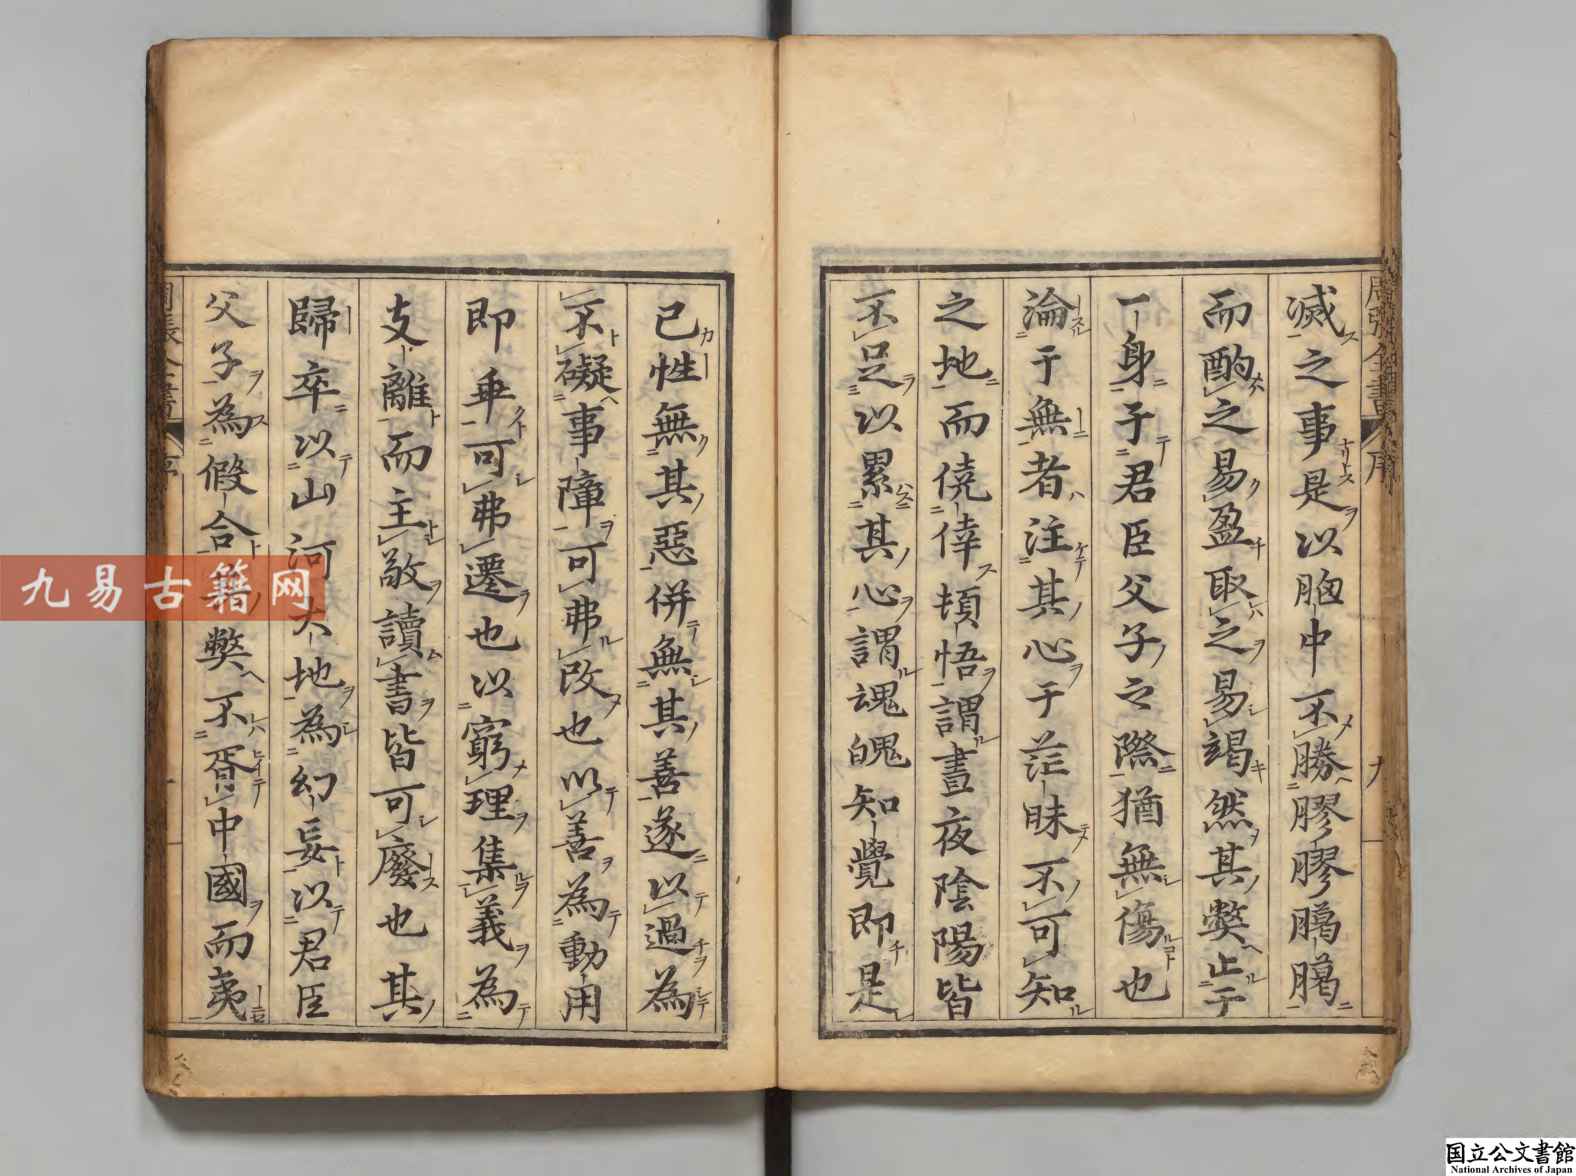 滅之事是以胸中不勝膠膠膶膶
而酌之易盈取之易竭然其獘止于
一身子君臣父子之際猶無傷也
淪于無者注其心于茫昧不可知
之地而僥倖頓悟謂晝夜陰陽皆
不足以累其心謂魂魄知覺即是
己性無其惡併無其善遂以過為
不礙事障可弗改也以善為動用
即垂可弗遷也以窮理集義為
支離而主敬讀書皆可廢也其
歸卒以山河大地為幻妄以君臣
父子為假合獘不胥中國而夷
周張全書
序
九易古籍网
国立公文書館
National Archives of Japan